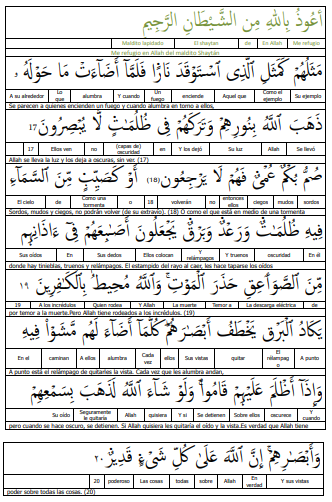 أعُوذُ بِاللهِ مِن الشَّيْطَانِ الرَّجِيْم
Maldito lapidado El shaytan de En Allah Me refugio
Me refugio en Allah del maldito Shaytán
مَثَلُهُمْ كَمَثَلِ الَّذِى اسْتَوْقَدَ نَارًا فَلَمَّآ أَضَآءَتْ مَا حَوْلَهُۥ
A su alrededor Lo que alumbra Y cuando Un fuego enciende Aquel que Como el ejemplo Su ejemplo
Se parecen a quienes encienden un fuego y cuando alumbra en torno a ellos,
ذَهَبَ اللَّهُ بِنُورِهِمْ وَتَرَكَهُمْ فِى ظُلُمَٰتٍ لَّا يُبْصِرُونَ 17
17 Ellos ven no (capas de) oscuridad en Y los dejó Su luz Allah Se llevó
Allah se lleva la luz y los deja a oscuras, sin ver. (17)
صُمٌّۢ بُكْمٌ عُمْىٌ فَهُمْ لَا يَرْجِعُونَ (18) أَوْ كَصَيِّبٍ مِّنَ السَّمَآءِ
El cielo de Como una tormenta o 18 volverán no entonces ellos ciegos mudos sordos
Sordos, mudos y ciegos, no podrán volver (de su extravío). (18) O como el que está en medio de una tormenta
فِيهِ ظُلُمَٰتٌ وَرَعْدٌ وَبَرْقٌ يَجْعَلُونَ أَصَٰبِعَهُمْ فِىٓ ءَاذَانِهِم
Sus oídos En Sus dedos Ellos colocan Y relámpagos Y truenos oscuridad En él
donde hay tinieblas, truenos y relámpagos. El estampido del rayo al caer, les hace taparse los oídos
مِّنَ الصَّوَٰعِقِ حَذَرَ الْمَوْتِ وَاللَّهُ مُحِيطٌۢ بِالْكَٰفِرِينَ ١٩
19 A los incrédulos Quien rodea Y Allah La muerte Temor a La descarga eléctrica de
por temor a la muerte.Pero Allah tiene rodeados a los incrédulos. (19)
يَكَادُ الْبَرْقُ يَخْطَفُ أَبْصَٰرَهُمْ كُلَّمَآ أَضَآءَ لَهُم مَّشَوْا۟ فِيهِ
En el caminan A ellos alumbra Cada vez ellos Sus vistas quitar El relámpago A punto
A punto está el relámpago de quitarles la vista. Cada vez que les alumbra andan,
وَإِذَآ أَظْلَمَ عَلَيْهِمْ قَامُوا۟ وَلَوْ شَآءَ اللَّهُ لَذَهَبَ بِسَمْعِهِمْ
Su oído Seguramente le quitaría Allah quisiera Y si Se detienen Sobre ellos oscurece Y cuando
pero cuando se hace oscuro, se detienen. Si Allah quisiera les quitaría el oído y la vista.Es verdad que Allah tiene
وَأَبْصَٰرِهِمْ إِنَّ اللَّهَ عَلَىٰ كُلِّ شَىْءٍ قَدِيرٌ ٢٠
20 poderoso Las cosas todas sobre Allah En verdad Y sus vistas
poder sobre todas las cosas. (20)